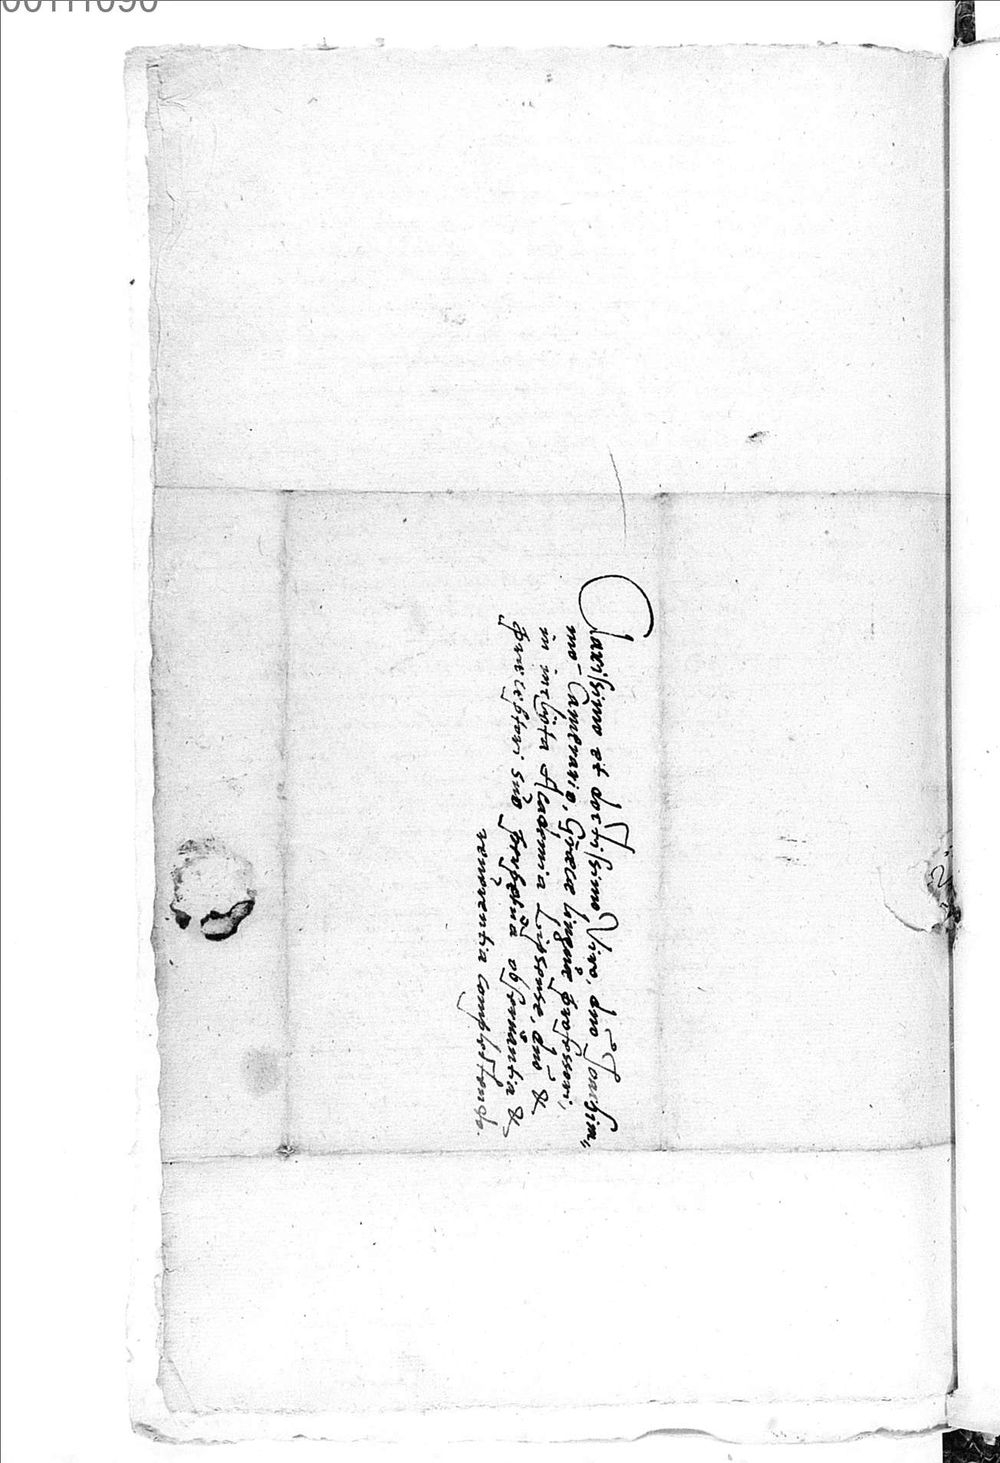 00111090
Clarissimo et doctissimo Viro, dno Joachim,,
mo Camerario, Græcæ linguæ professori,
in inclyta Academia Lipsense, dno &
præceptori suo perpetua obseruantia &
reuerentia complectendo.